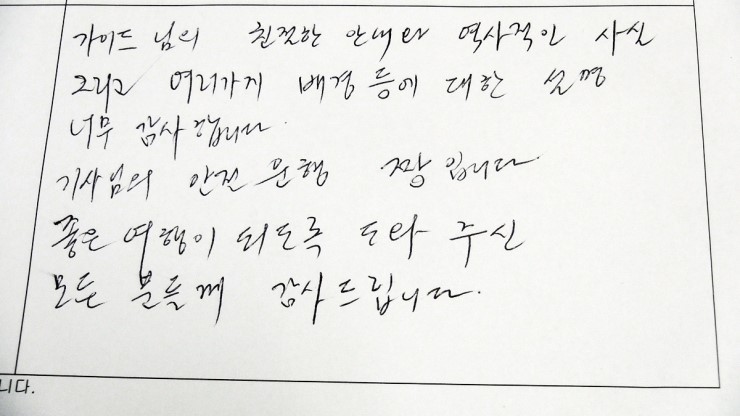 가이드 님의 친절한 안내와 역사적인 사실
그리고 여러가지 배경 등에 대한 설명
너무 감사합니다.
기사님의 안전 운행 짱입니다.
좋은 여행이 되도록 도와 주신
모든 분들께 감사드립니다.
니다.